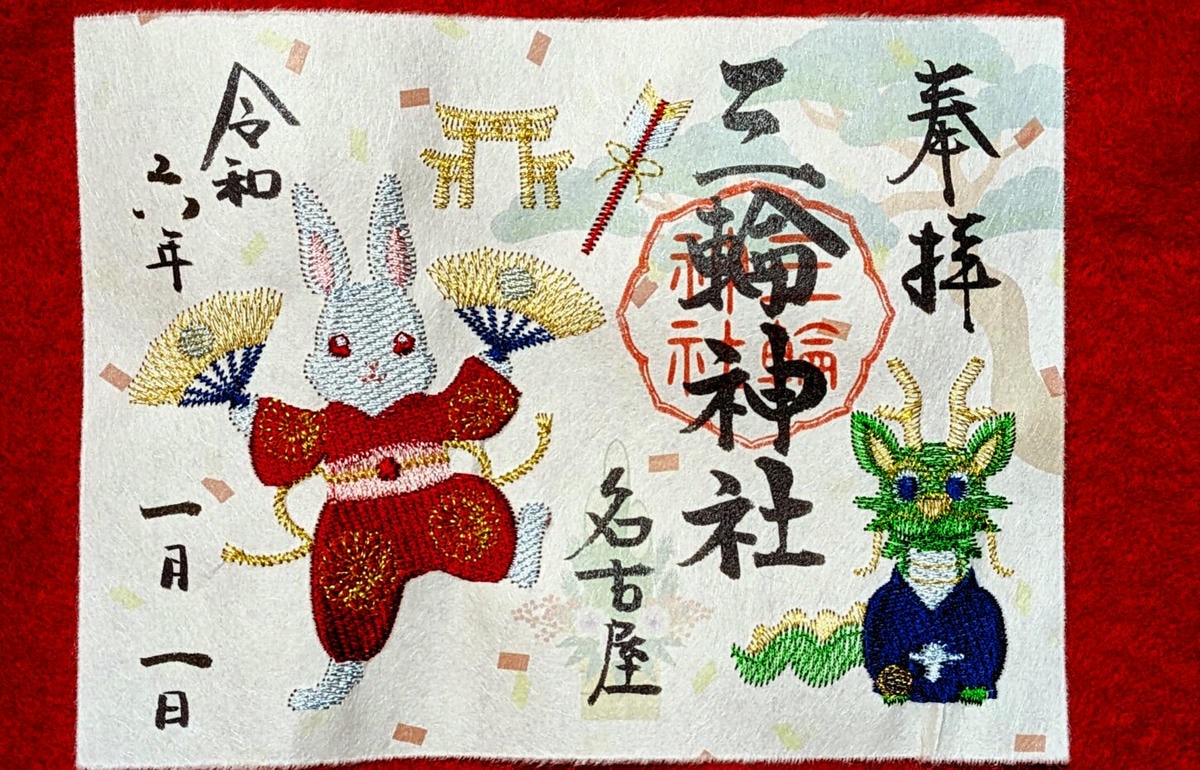 奉拝
三輪神社
三輪神社
名古屋
令和
六年
一月
一日